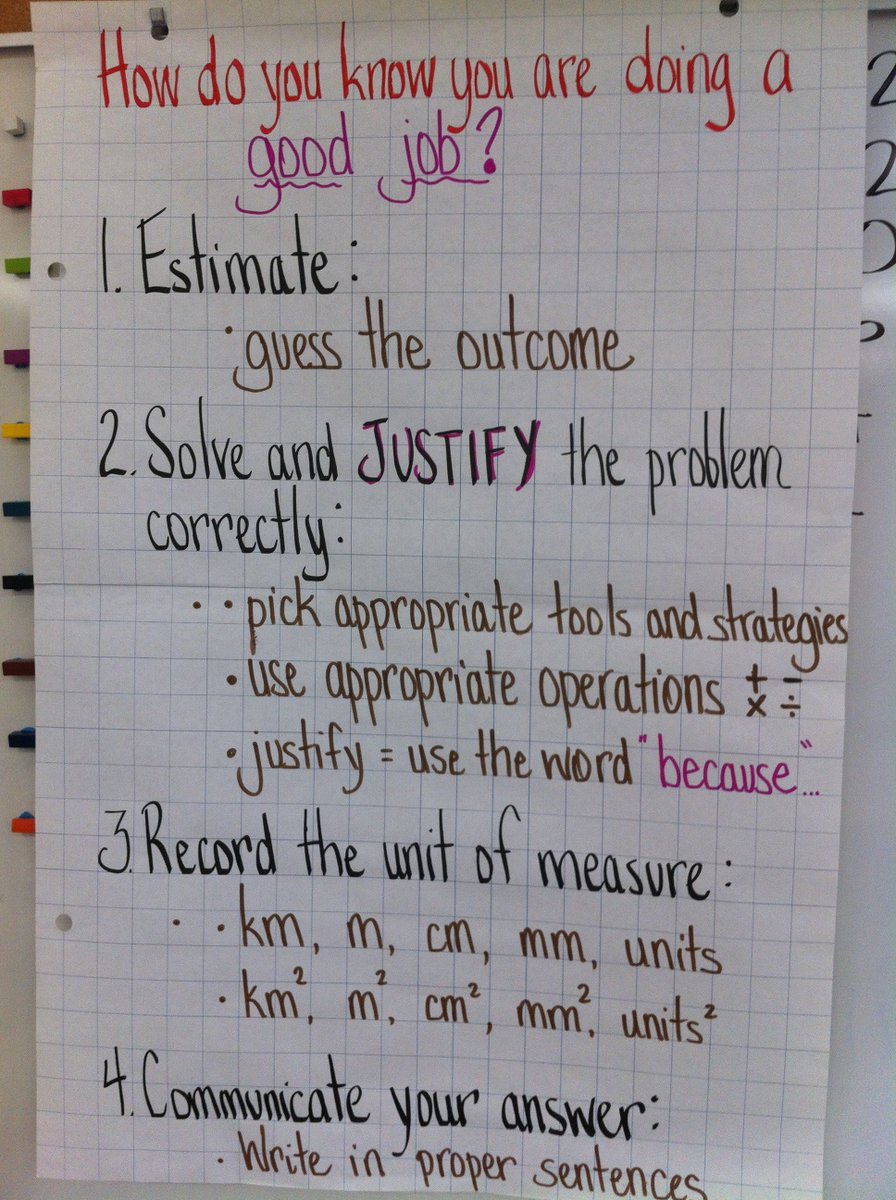 How do you know you are doing a
good job?
1. Estimate:
· guess the outcome
2. Solve and JUSTIFY the problem
correctly:
· · pick appropriate tools and strategies
· use appropriate operations + − × ÷
· justify = use the word "because..."
3. Record the unit of measure:
· · km, m, cm, mm, units
· km², m², cm², mm², units²
4. Communicate your answer:
· Write in proper sentences